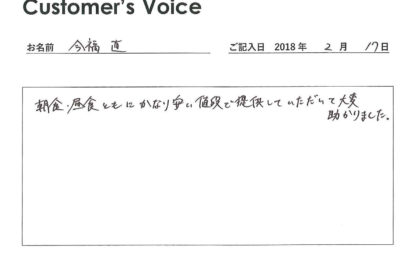 Customer's Voice
お名前 今福 直 ご記入日 2018 年 2 月 17日
朝食・昼食ともにかなり安い値段で提供していただいて大変
助かりました。